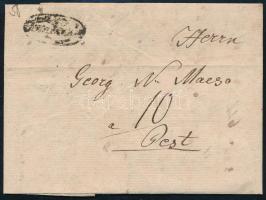 Herrn
Georg N. Maeso
10
a
Pest